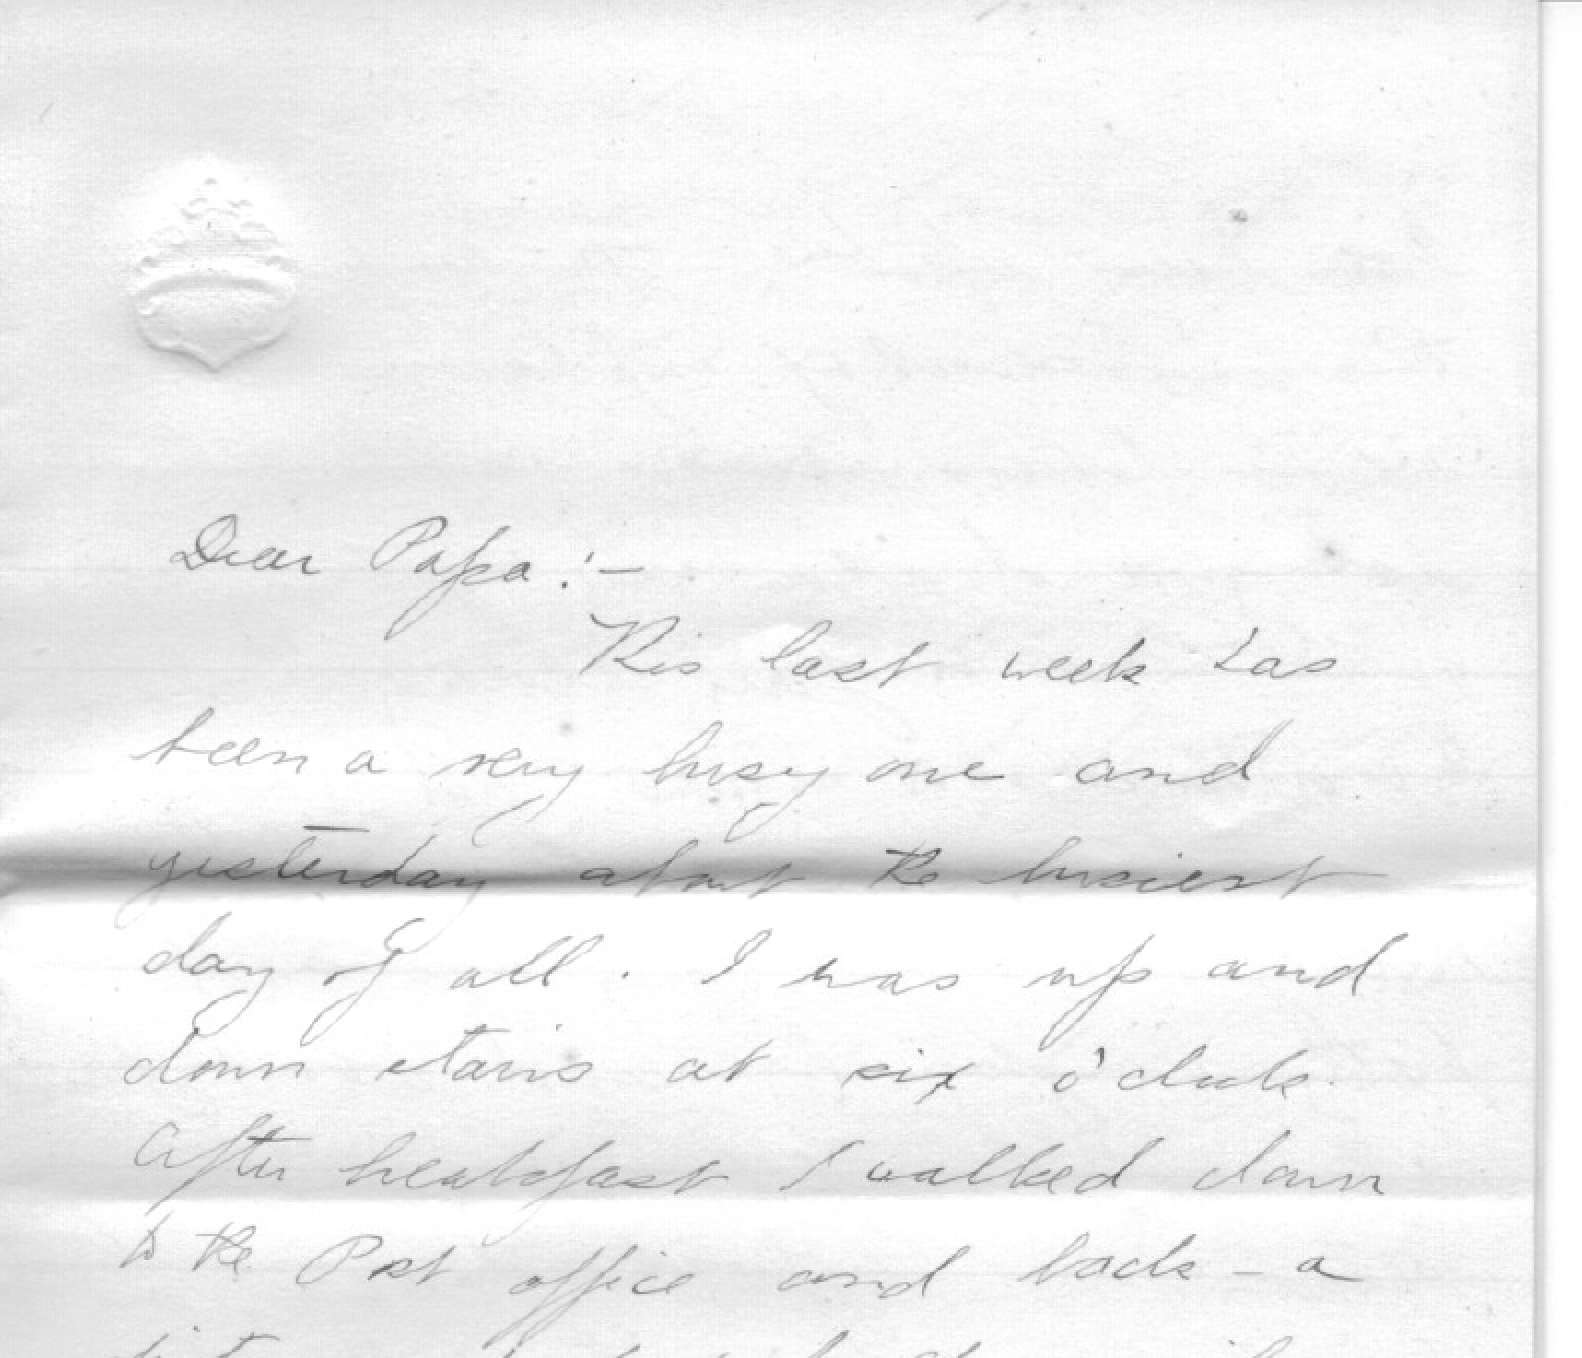 Dear Papa:—
This last week has
been a very busy one and
yesterday about the busiest
day of all. I was up and
down stairs at six o'clock.
After breakfast I walked down
to the Post office and back - a